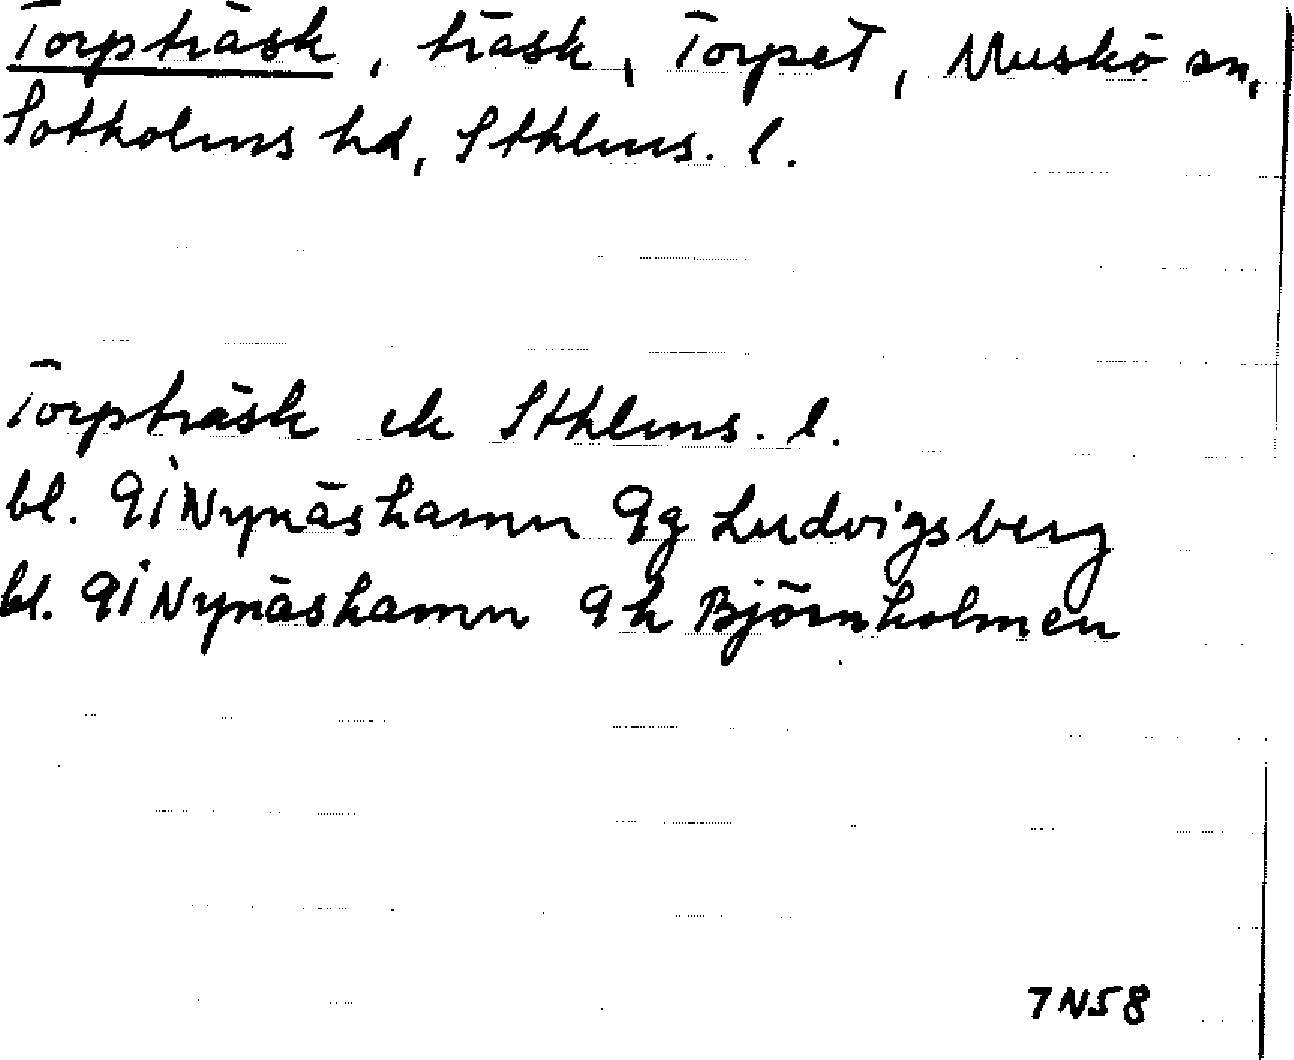 Torpträsk, träsk, Torpet, Muskö sn,
Sotholms hd, Sthlms. l.
Torpträsk ek Sthlms. l.
bl. 9i Nynäshamn 9g Ludvigsberg
bl. 9i Nynäshamn 9h Björnholmen
7N58